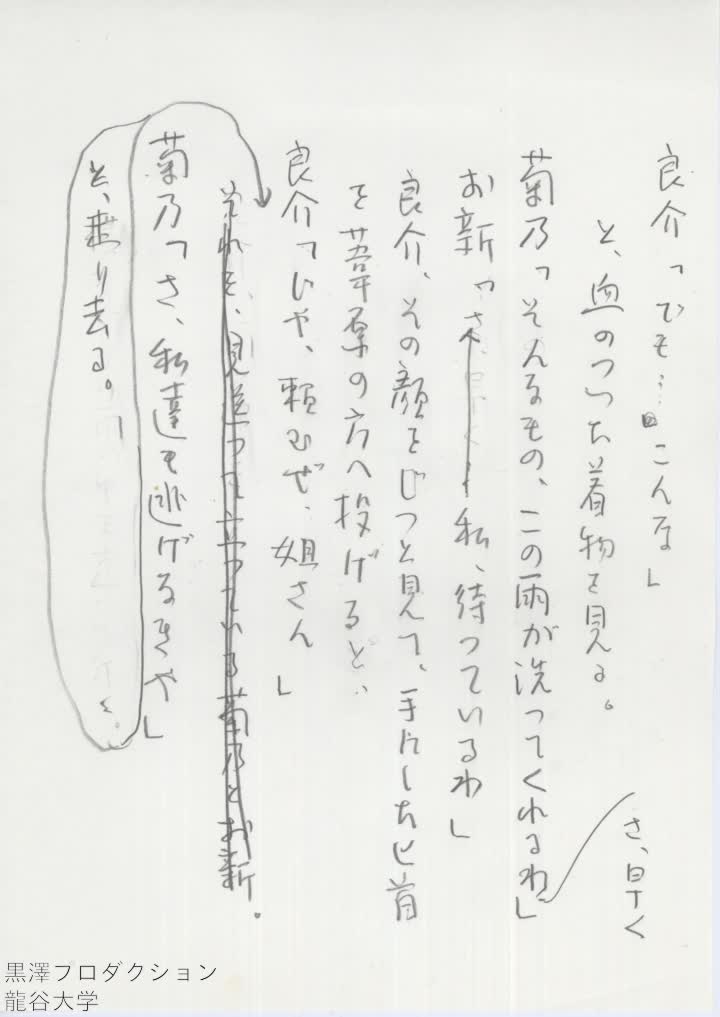 良介「でも…こんな」
と、血のついた着物を見る。
菊乃「そんなもの、この雨が洗ってくれるわ」
さ、早く
お新「さ、早く 私、待っているわ」
良介、その顔をじっと見て、手にした匕首
を葦原の方へ投げると、
良介「じゃ、頼むぜ、姐さん」
それを、見送って立っている菊乃とお新。
菊乃「さ、私達も逃げるきや」
と、走り去る。
黒澤プロダクション
龍谷大学